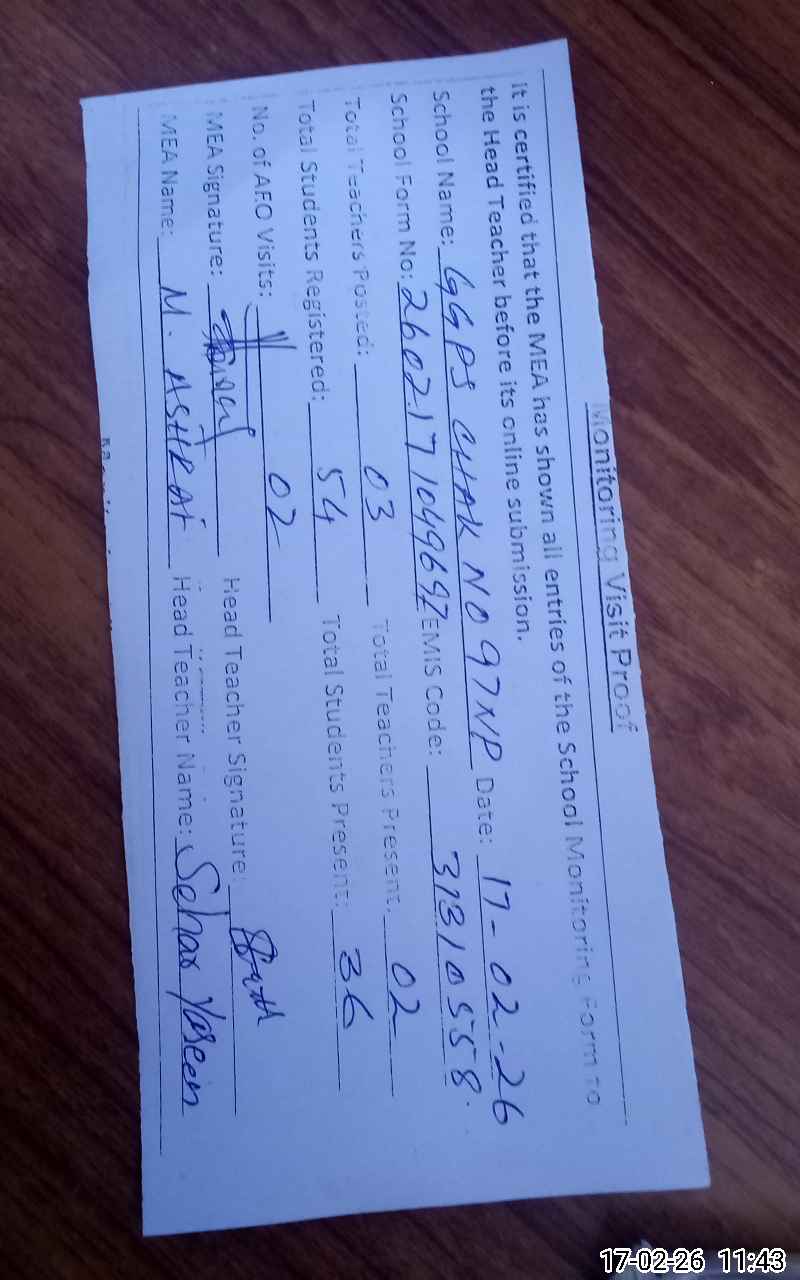 Monitoring Visit Proof
It is certified that the MEA has shown all entries of the School Monitoring Form to
the Head Teacher before its online submission.
School Name: GGPS CHAK NO 97NP Date: 17-02-26
School Form No: 260217104969 EMIS Code: 31310558
Total Teachers Posted: 03 Total Teachers Present: 02
Total Students Registered: 54 Total Students Present: 36
No. of AEO Visits: 02
MEA Signature: Head Teacher Signature:
MEA Name: M. ASHRAF Head Teacher Name: Sehar Yaseen
17-02-26 11:43